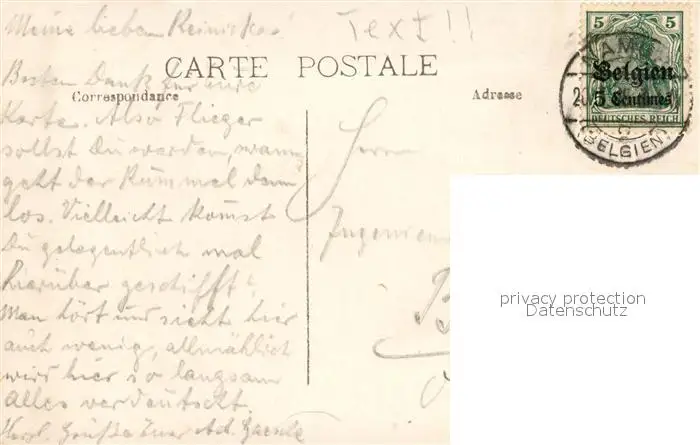 Meine lieben Reinickes!
Text!!
Besten Dank für eure
CARTE POSTALE
Correspondance
Adresse
Karte. Also Flieger
sollst Du werden, wann
geht der Rummel denn
los. Vielleicht kömst
Du gelegentlich mal
hierüber geschifft.
Man hört und sieht hier
auch wenig, allmählich
wird hier so langsam
alles verdeutscht.
Herzl. Grüße Euer Ad.
Herrn
Ingenieur
5 5
Belgien
5 Centimes
DEUTSCHES REICH
NAM
(BELGIEN)
privacy protection
Datenschutz